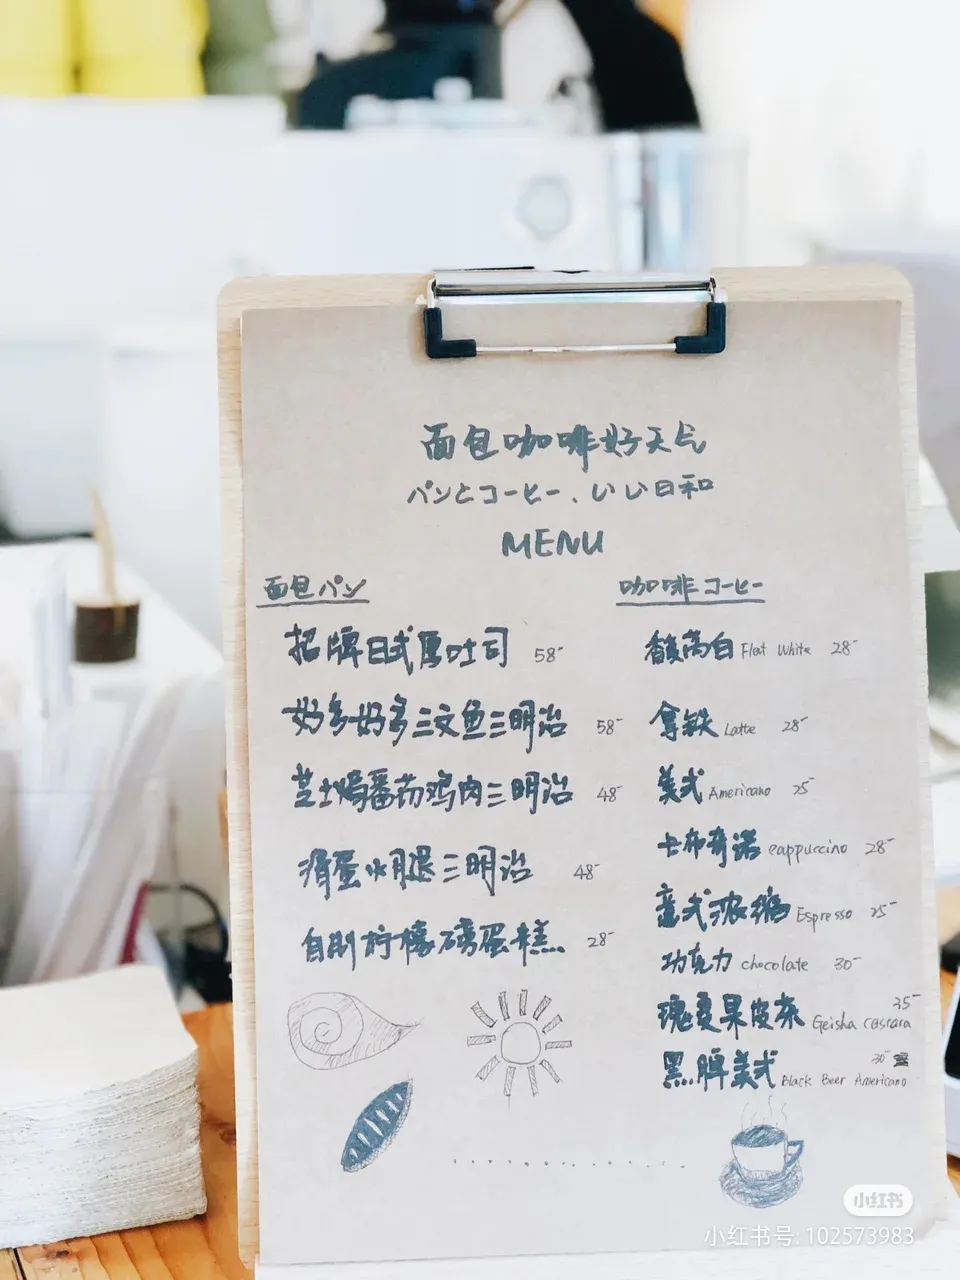 面包咖啡好天气
パンとコーヒー、いい日和
MENU
面包パン
招牌日式厚吐司 58-
好多好多三文鱼三明治 58-
芝士焗蕃茄鸡肉三明治 48-
滑蛋火腿三明治 48-
自制柠檬磅蛋糕 28-
咖啡コーヒー
馥芮白 Flat White 28-
拿铁 Latte 28-
美式 Americano 25-
卡布奇诺 cappuccino 28-
意式浓缩 Espresso 25-
巧克力 chocolate 30-
瑰夏果皮茶 Geisha cascara 35-
黑啤美式 Black Beer Americano 30-
小红书
小红书号: 102573983